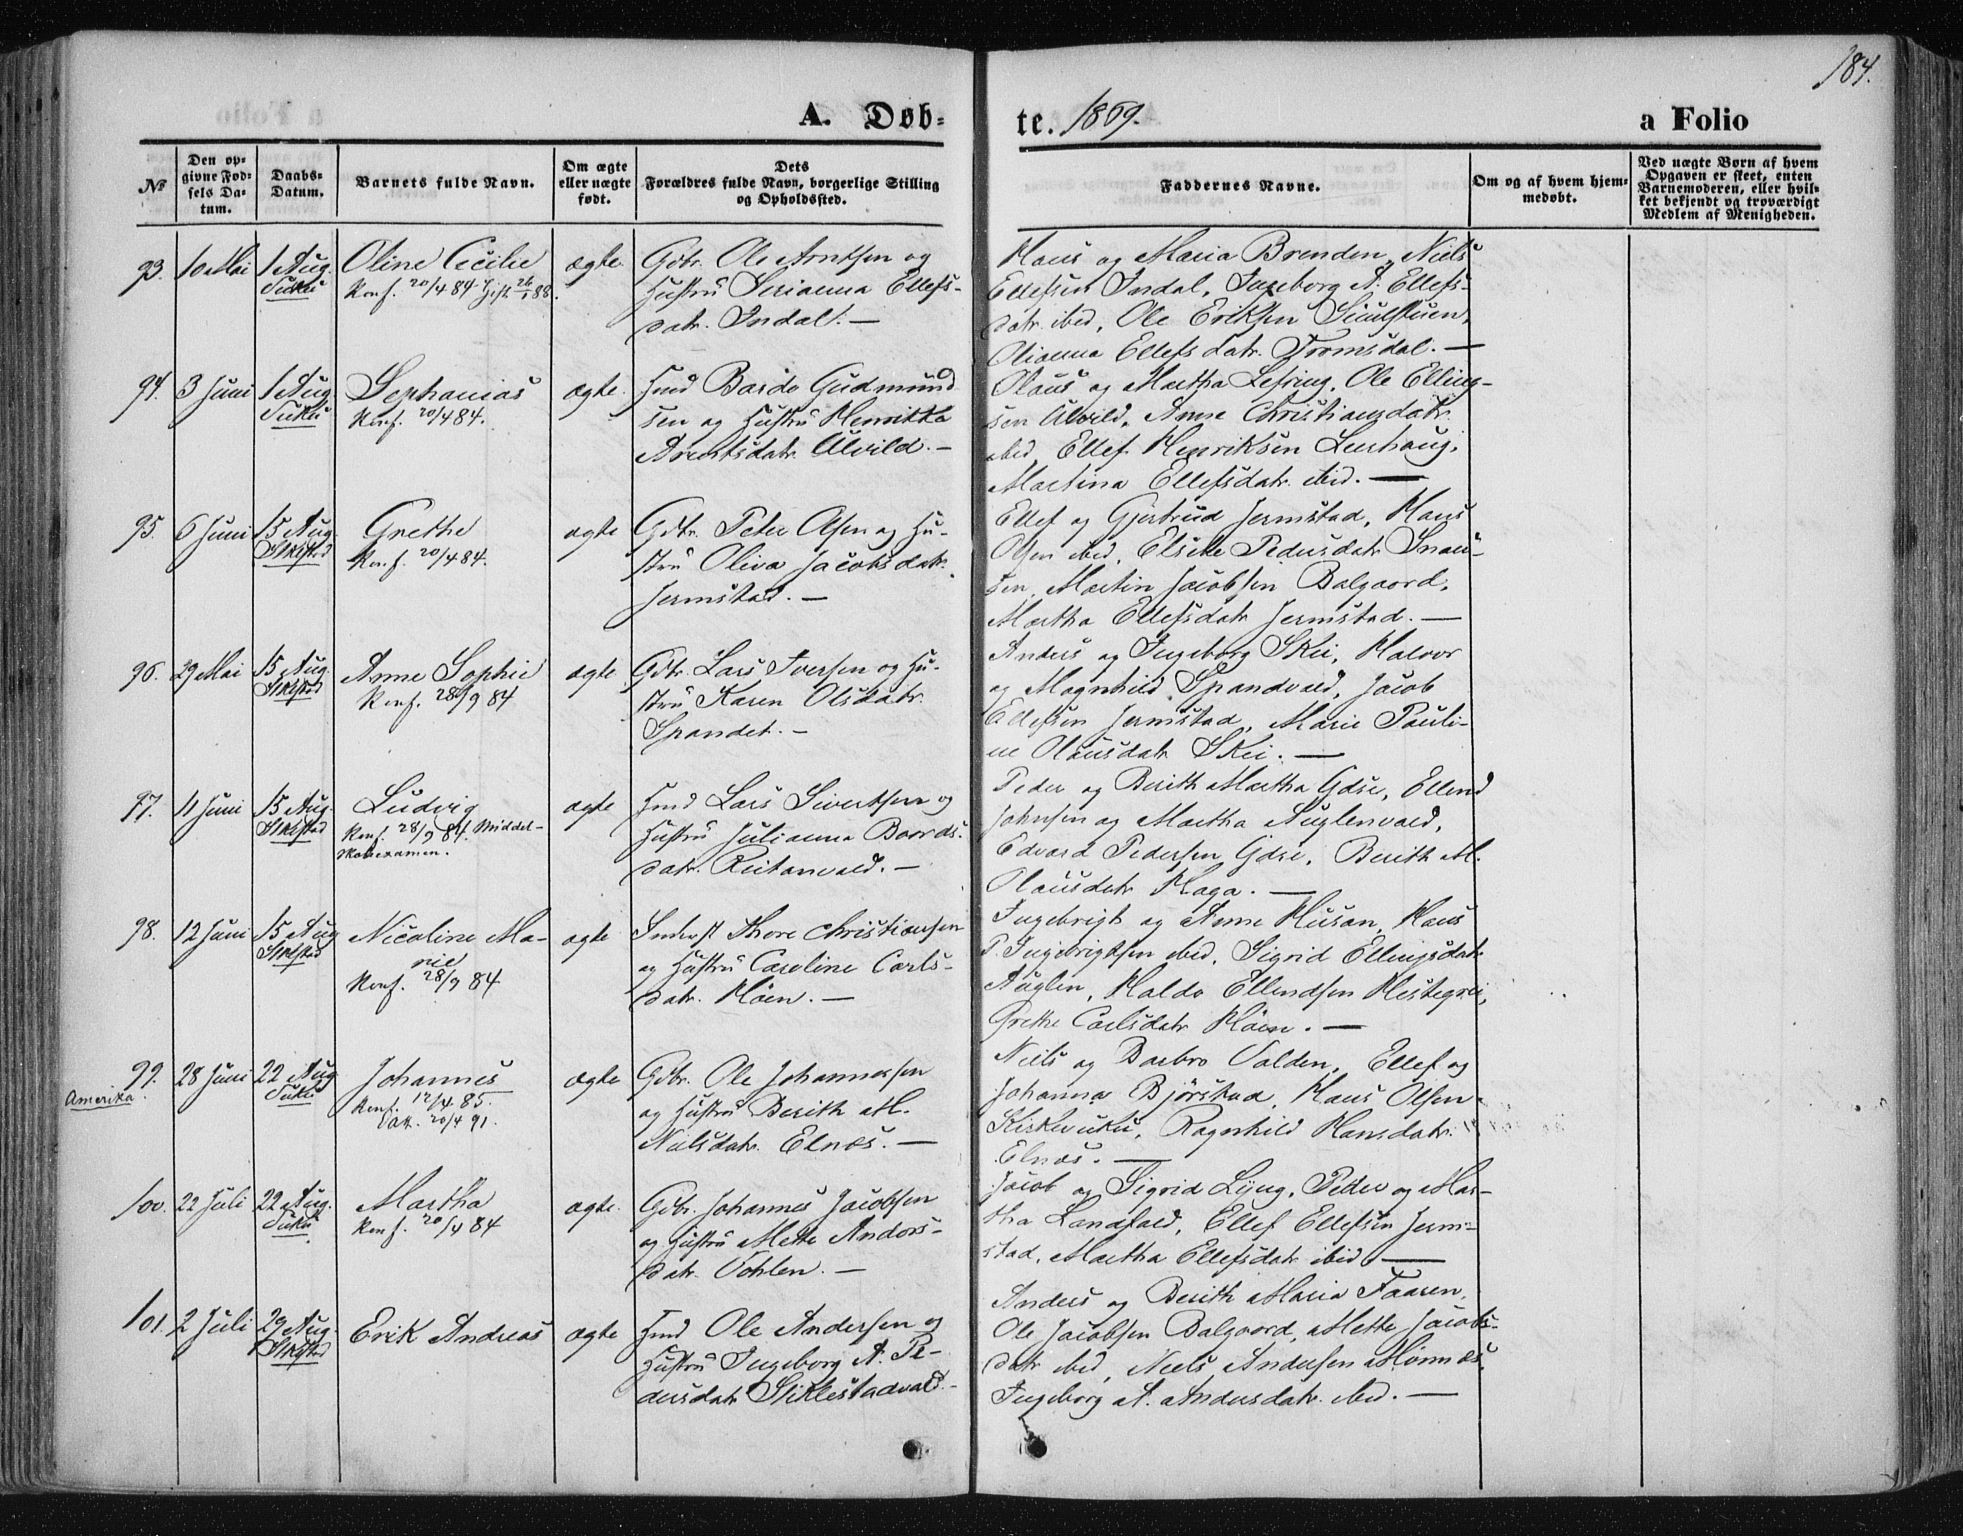 184.
A. Døb-
te. 1869.
a Folio
№
Den op-
givne Fød-
sels Da-
tum.
Daabs-
Datum.
Barnets fulde Navn.
Om ægte
eller uægte
født.
Dets
Forældres fulde Navn, borgerlige Stilling
og Opholdssted.
Faddernes Navne.
Om og af hvem hjem-
medøbt.
Ved uægte Børn af hvem
Opgaven er skeet, enten
Barnemoderen, eller hvil-
ket bekjendt og troværdigt
Medlem af Menigheden.
93. 10 Mai 1 Aug.
Suku
Oline Cecilie
Konf. 20/4 84. Gift 26/1 88.
ægte.
Gdbr. Ole Arntsen og
Hustru Serianna Ellefs-
datr. Indal. —
Hans og Maria Brenden, Niels
Ellefsen Indal, Ingeborg A. Ellefs-
datr. ibid, Ole Eriksen
Olianna Ellefsdatr. Tromsdal. —
94. 3 Juni 1 Aug
Suku
Sephanias
Konf. 20/4 84.
ægte.
Hmd Bardo Gudmund
sen og Hustru Henrikka
Arentsdatr. Alvild. —
Olaus og Martha Lesring, Ole Elling-
sen Alvild, Anne Christiansdatr.
ibid, Ellef Henriksen Leirhaug,
Martina Ellefsdatr. ibid. —
95. 6 Juni 15 Aug.
Stklstad
Grethe
Konf. 20/4 84.
ægte
Gdbr. Peter Olsen og Hu-
stru Oliva Jacobsdatr.
Jermstad. —
Ellef og Gjertrud Jermstad, Hans
Olsen ibid, Elsebe Pedersdatr. Snau-
sen, Martin Jacobsen Balgaard,
Martha Ellefsdatr Jermstad. —
96. 29 Mai 15 Aug.
Stklstad
Anne Sophie
Konf. 28/9 84
ægte.
Gdbr. Lars Iversen og Hu-
stru Karen Olsdatr.
Spandet. —
Anders og Ingeborg Skei, Halvor
og Magnhild Spandvald, Jacob
Ellefsen Jermstad, Marie Pauli-
ne Olausdatr Skei. —
97. 11 Juni 15 Aug.
Stklstad
Ludvig
Konf. 28/9 84. Middel-
skoleexamen.
ægte
Hmd Lars Sivertsen og
Hustru Julianna Baards-
datr. Reitanvald. —
Peder og Berith Martha Gdse, Ellend
Johnsen og Martha Auglenvald,
Edvard Pedersen Gdse, Berith M.
Olausdatr Haga. —
98. 12 Juni 15 Aug
Stklstad
Nicoline Ma-
rie
Konf. 28/9 84
ægte
Inderst Thore Christiansen
og Hustru Caroline Carls-
datr. Höen. —
Ingebrigt og Anne Husan, Hans
P. Ingebrigtsen ibid, Sigrid Ellingsdatr.
Auglen, Haldo Ellendsen Hestegrei,
Grethe Carlsdatr Höen. —
99. 28 Juni 22 Aug
Suku
Amerika.
Johannes
Konf. 12/4 85.
Vatt. 20/4 91.
ægte
Gdbr. Ole Johannessen
og Hustru Berith M.
Nielsdatr. Elnæs. —
Niels og Barbro Valden, Ellef og
Johanna Bjørstad, Hans Olsen
Kirkeviku, Ragnhild Hansdatr.
Elnæs. —
100. 22 Juli 22 Aug.
Suku
Martha
Konf. 20/4 84
ægte.
Gdbr. Johannes Jacobsen
og Hustru Mette Anders-
datr. Vohlen. —
Jacob og Sigrid Lyng, Peder og Mar-
tha Landfald, Ellef Ellefsen Jerm-
stad, Martha Ellefsdatr ibid. —
101. 2 Juli 29 Aug.
Stklstad
Erik Andreas
ægte
Hmd Ole Andersen og
Hustru Ingeborg A. Pe-
dersdatr Stiklestadvald. —
Anders og Berith Maria Faaren,
Ole Jacobsen Balgaard, Mette Jacobs-
datr ibid, Niels Andersen Mönnæs,
Ingeborg A. Andersdatr. ibid. —